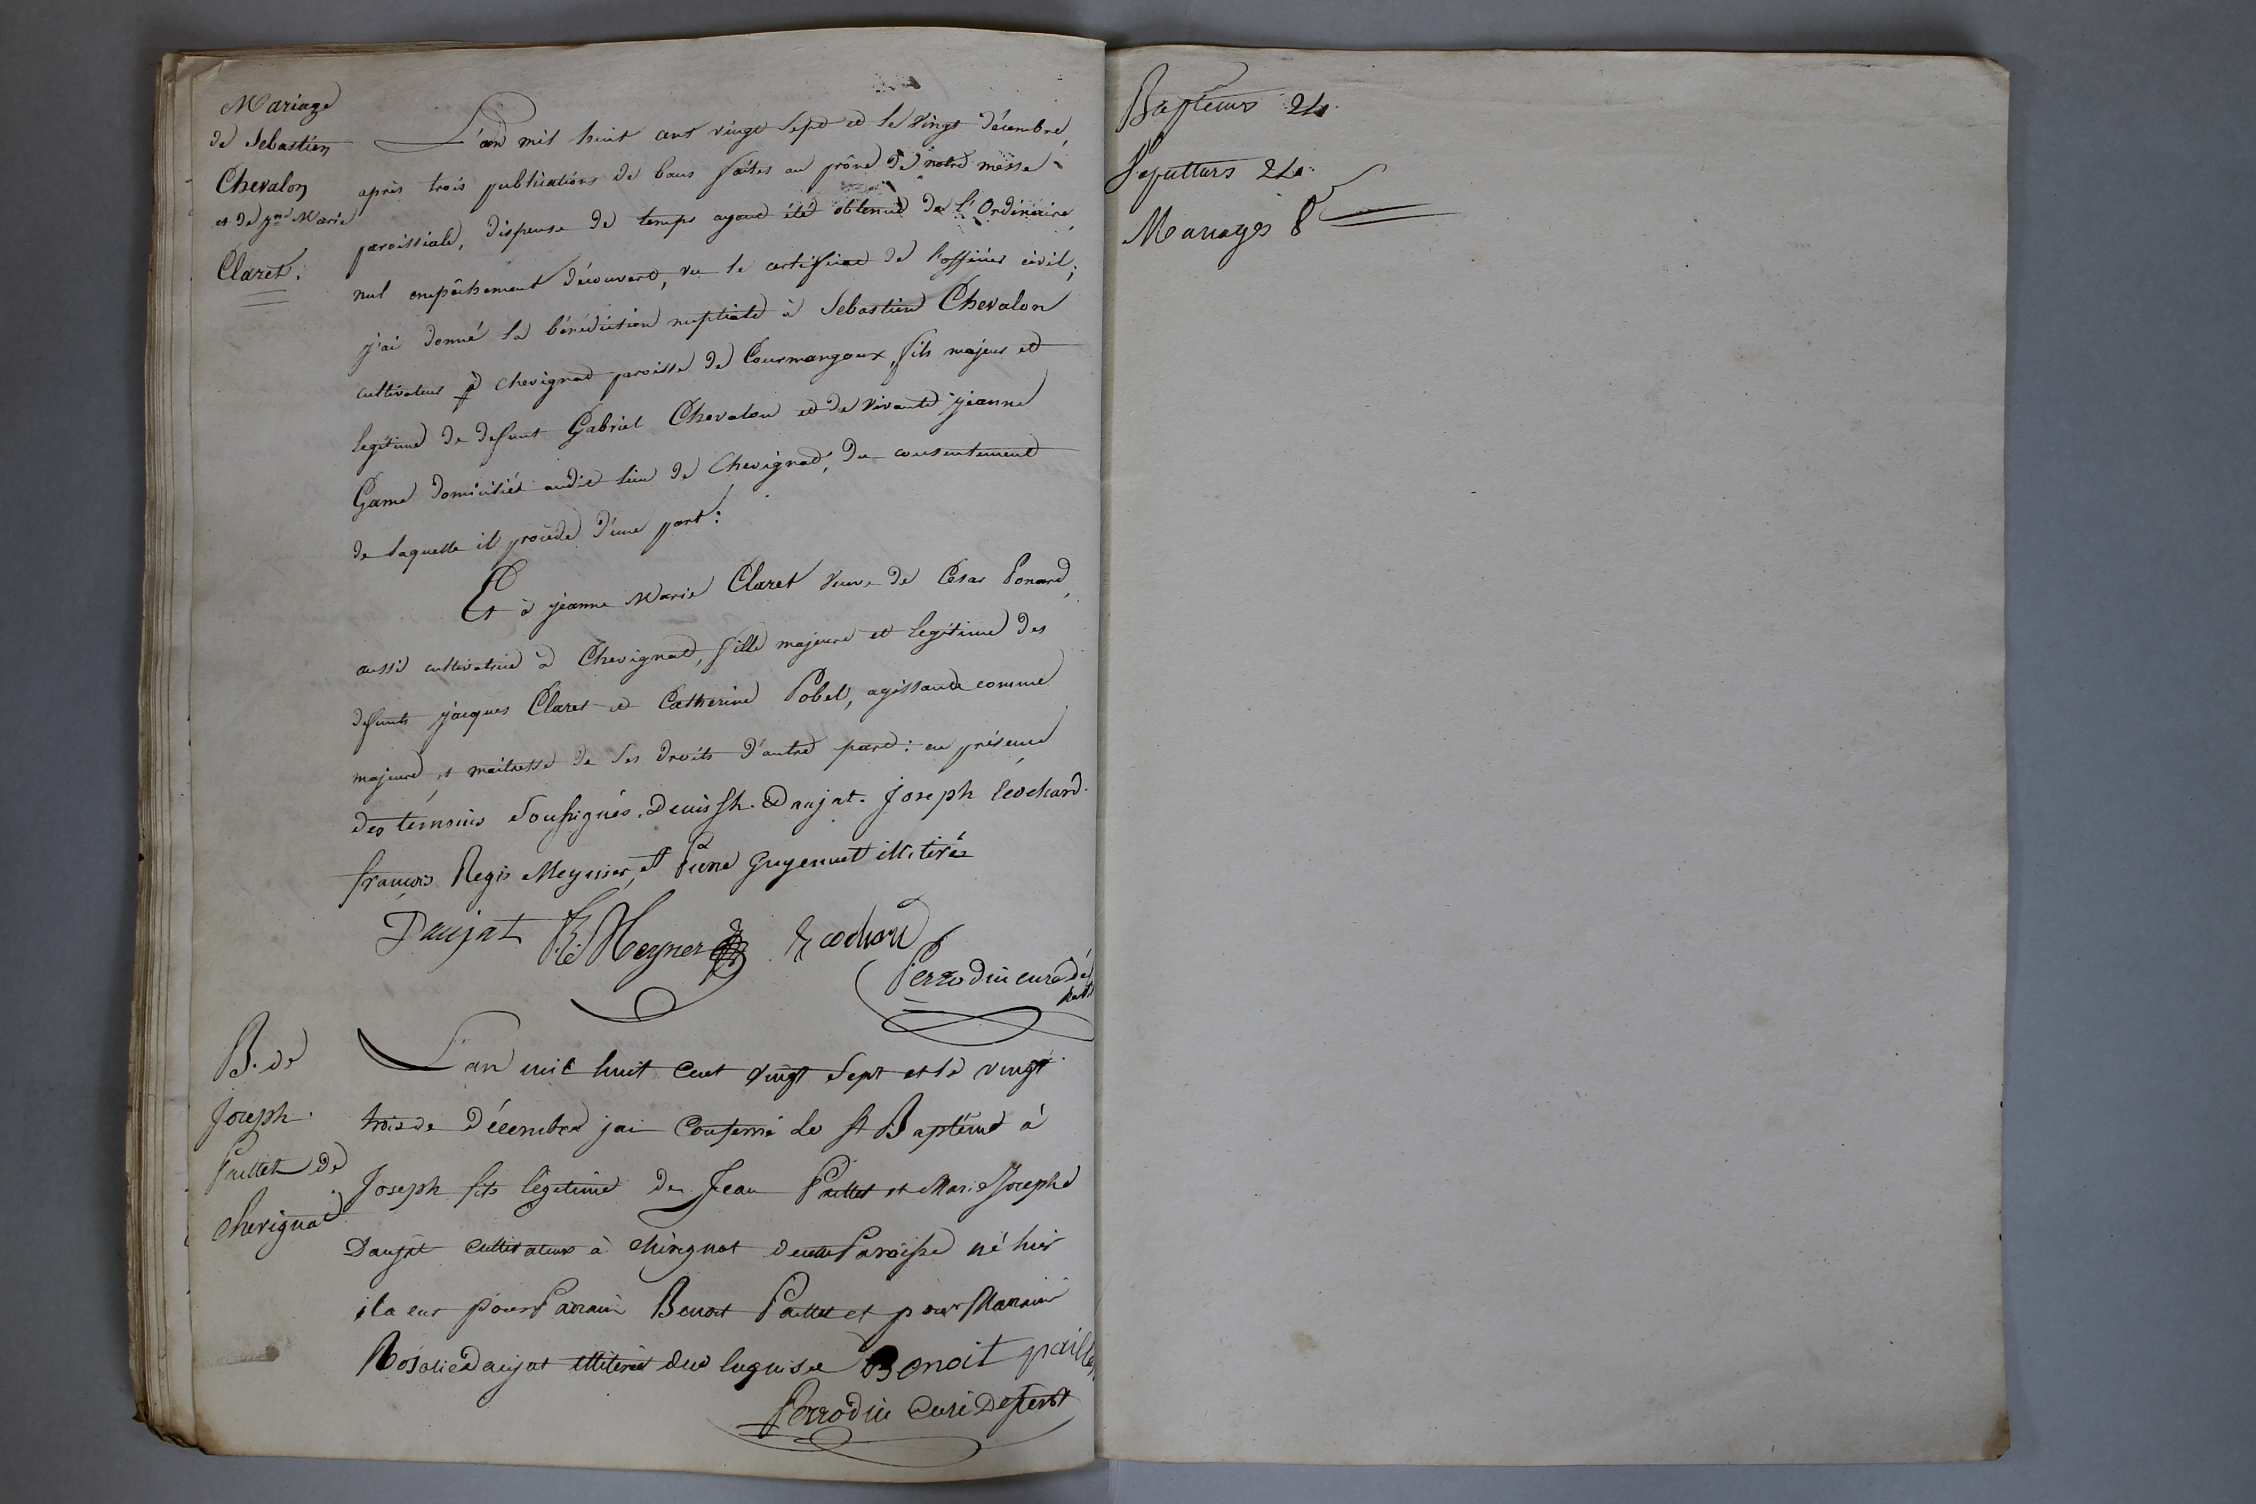 Mariage
de Sebastien
Chevalon
et de jne Marie
Claret.
L'an mil huit cent vingt sept et le vingt décembre,
après trois publications de bans faites au prône de notre messe
paroissiale, dispense de temps ayant été obtenue de l'Ordinaire,
nul empêchement découvert, vu le certificat de l'officier civil;
j'ai donné la bénédiction nuptiale à Sebastien Chevalon
cultivateur à Chevignat paroisse de Courmangoux, fils majeur et
legitime de defunt Gabriel Chevalon et de vivante jeanne
Game domiciliés audit lieu de Chevignat, du consentement
de laquelle il procède d'une part:
Et à jeanne Marie Claret veuve de César Ponard,
aussi cultivatrice à Chevignat, fille majeure et legitime des
defunts jacques Claret et Catherine Pobel, agissante comme
majeure, et maitresse de ses droits d'autre part: en présence
des témoins soussignés. Denis Jh. Daujat. Joseph
françois Regis Meynier, et Guyennet illitérés
Daujat Meynier
Perrodin curé
B. de
Joseph
Paillet de
Chevignat
L'an mil huit cent vingt sept et le vingt
trois de Décembre jai conferré le st Baptême à
Joseph fils légitime de Jean Paillet et Marie Josephe
Daujat cultivateurs à chevignat de cette Paroisse né hier
il a eut pour Parain Benoit Paillet et pour Maraine
Rosalie Daujat illitérée de ce requise Benoit paillet
Perrodin Curé Desservt
Baptêmes 24.
Sepultures 24.
Mariages 8